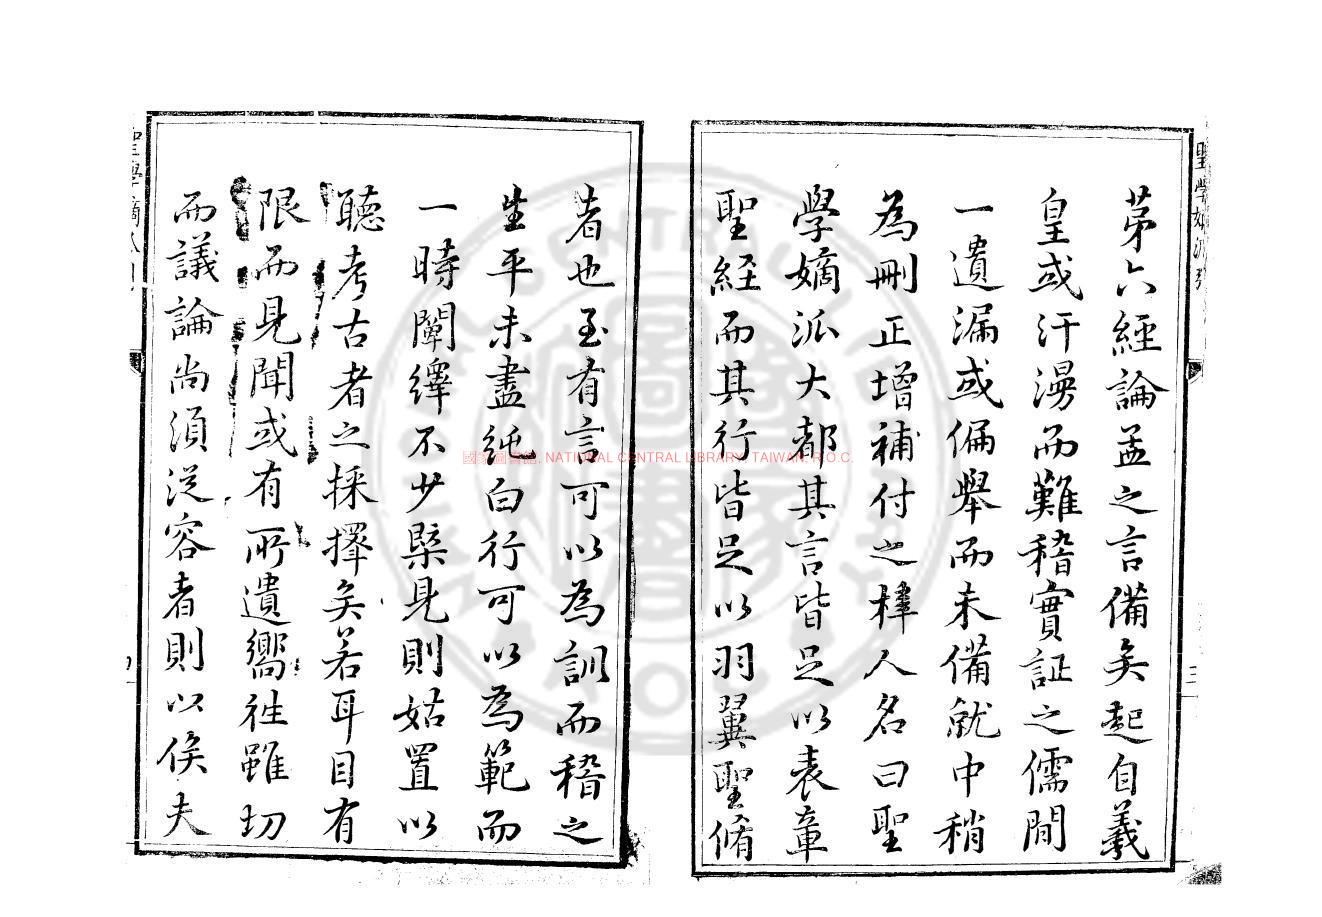 第六經論孟之言備矣起自羲
皇或汗漫而難稽實証之儒間
一遺漏或偏舉而未備就中稍
為刪正增補付之梓人名曰聖
學嫡派大都其言皆足以表章
聖經而其行皆足以羽翼聖脩
者也至有言可以為訓而稽之
生平未盡純白行可以為範而
一時闡繹不少槩見則姑置以
聽考古者之採擇矣若耳目有
限而見聞或有所遺嚮往雖切
而議論尚須從容者則以俟夫
三
國家圖書館, NATIONAL CENTRAL LIBRARY, TAIWAN, R.O.C.